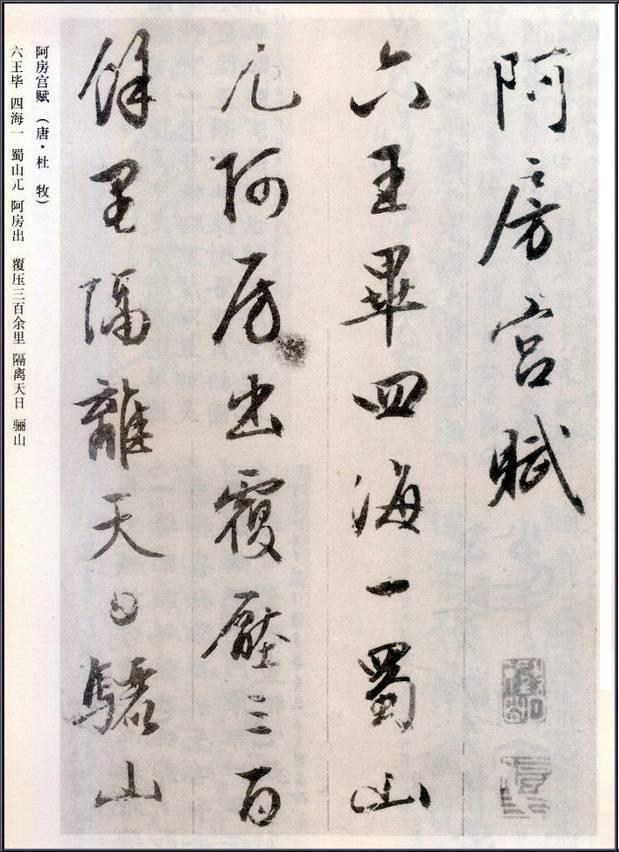 阿房宫賦
六王畢四海一蜀山
兀阿房出覆壓三百
餘里隔離天日驪山
阿房宫赋（唐·杜牧）
六王毕 四海一 蜀山兀 阿房出 覆压三百余里 隔离天日 骊山